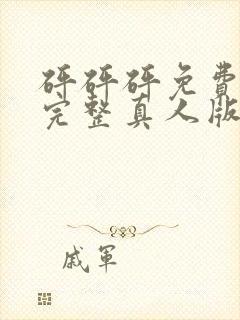 砰砰砰免費
完整真人版
戚軍